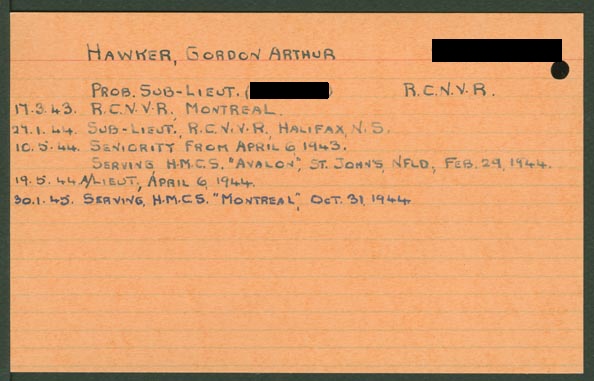 HAWKER, GORDON ARTHUR
PROB. SUB-LIEUT. ( ) R.C.N.V.R.
17.3.43. R.C.N.V.R., MONTREAL.
27.1.44. SUB-LIEUT., R.C.N.V.R., HALIFAX, N.S.
10.5.44. SENIORITY FROM APRIL 6, 1943.
SERVING H.M.C.S. "AVALON", ST. JOHN'S, NFLD., FEB. 29, 1944.
19.5.44. A/LIEUT., APRIL 6, 1944.
30.1.45. SERVING, H.M.C.S. "MONTREAL", OCT. 31, 1944